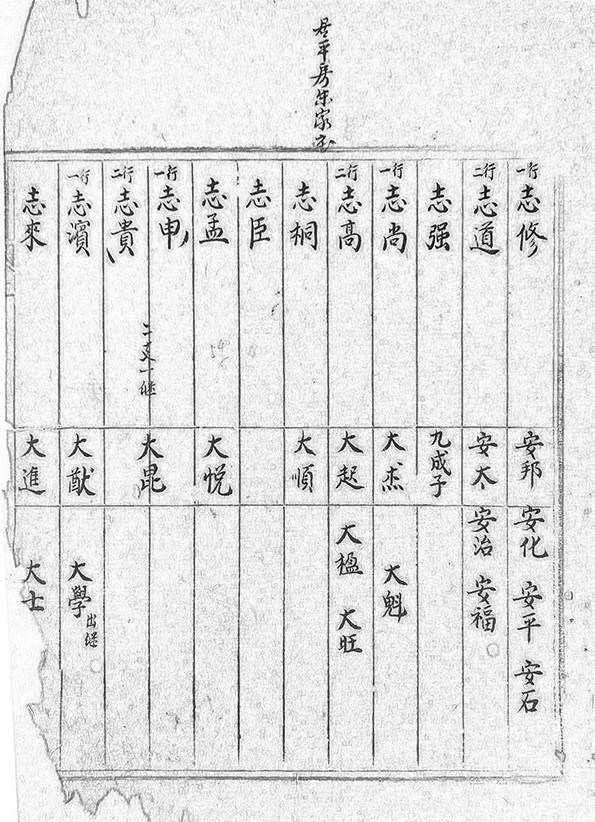 居平房朱家
一行 志修 安邦 安化 安平 安石
二行 志道 安太 安治 安福
志强 九成子
一行 志尚 大杰 大魁
二行 志高 大起 大楹 大旺
志桐 大順
志臣
志孟 大悦
一行 志申 二支一继 大昆
二行 志貴
一行 志濱 大猷 大學 出继
志來 大進 大士